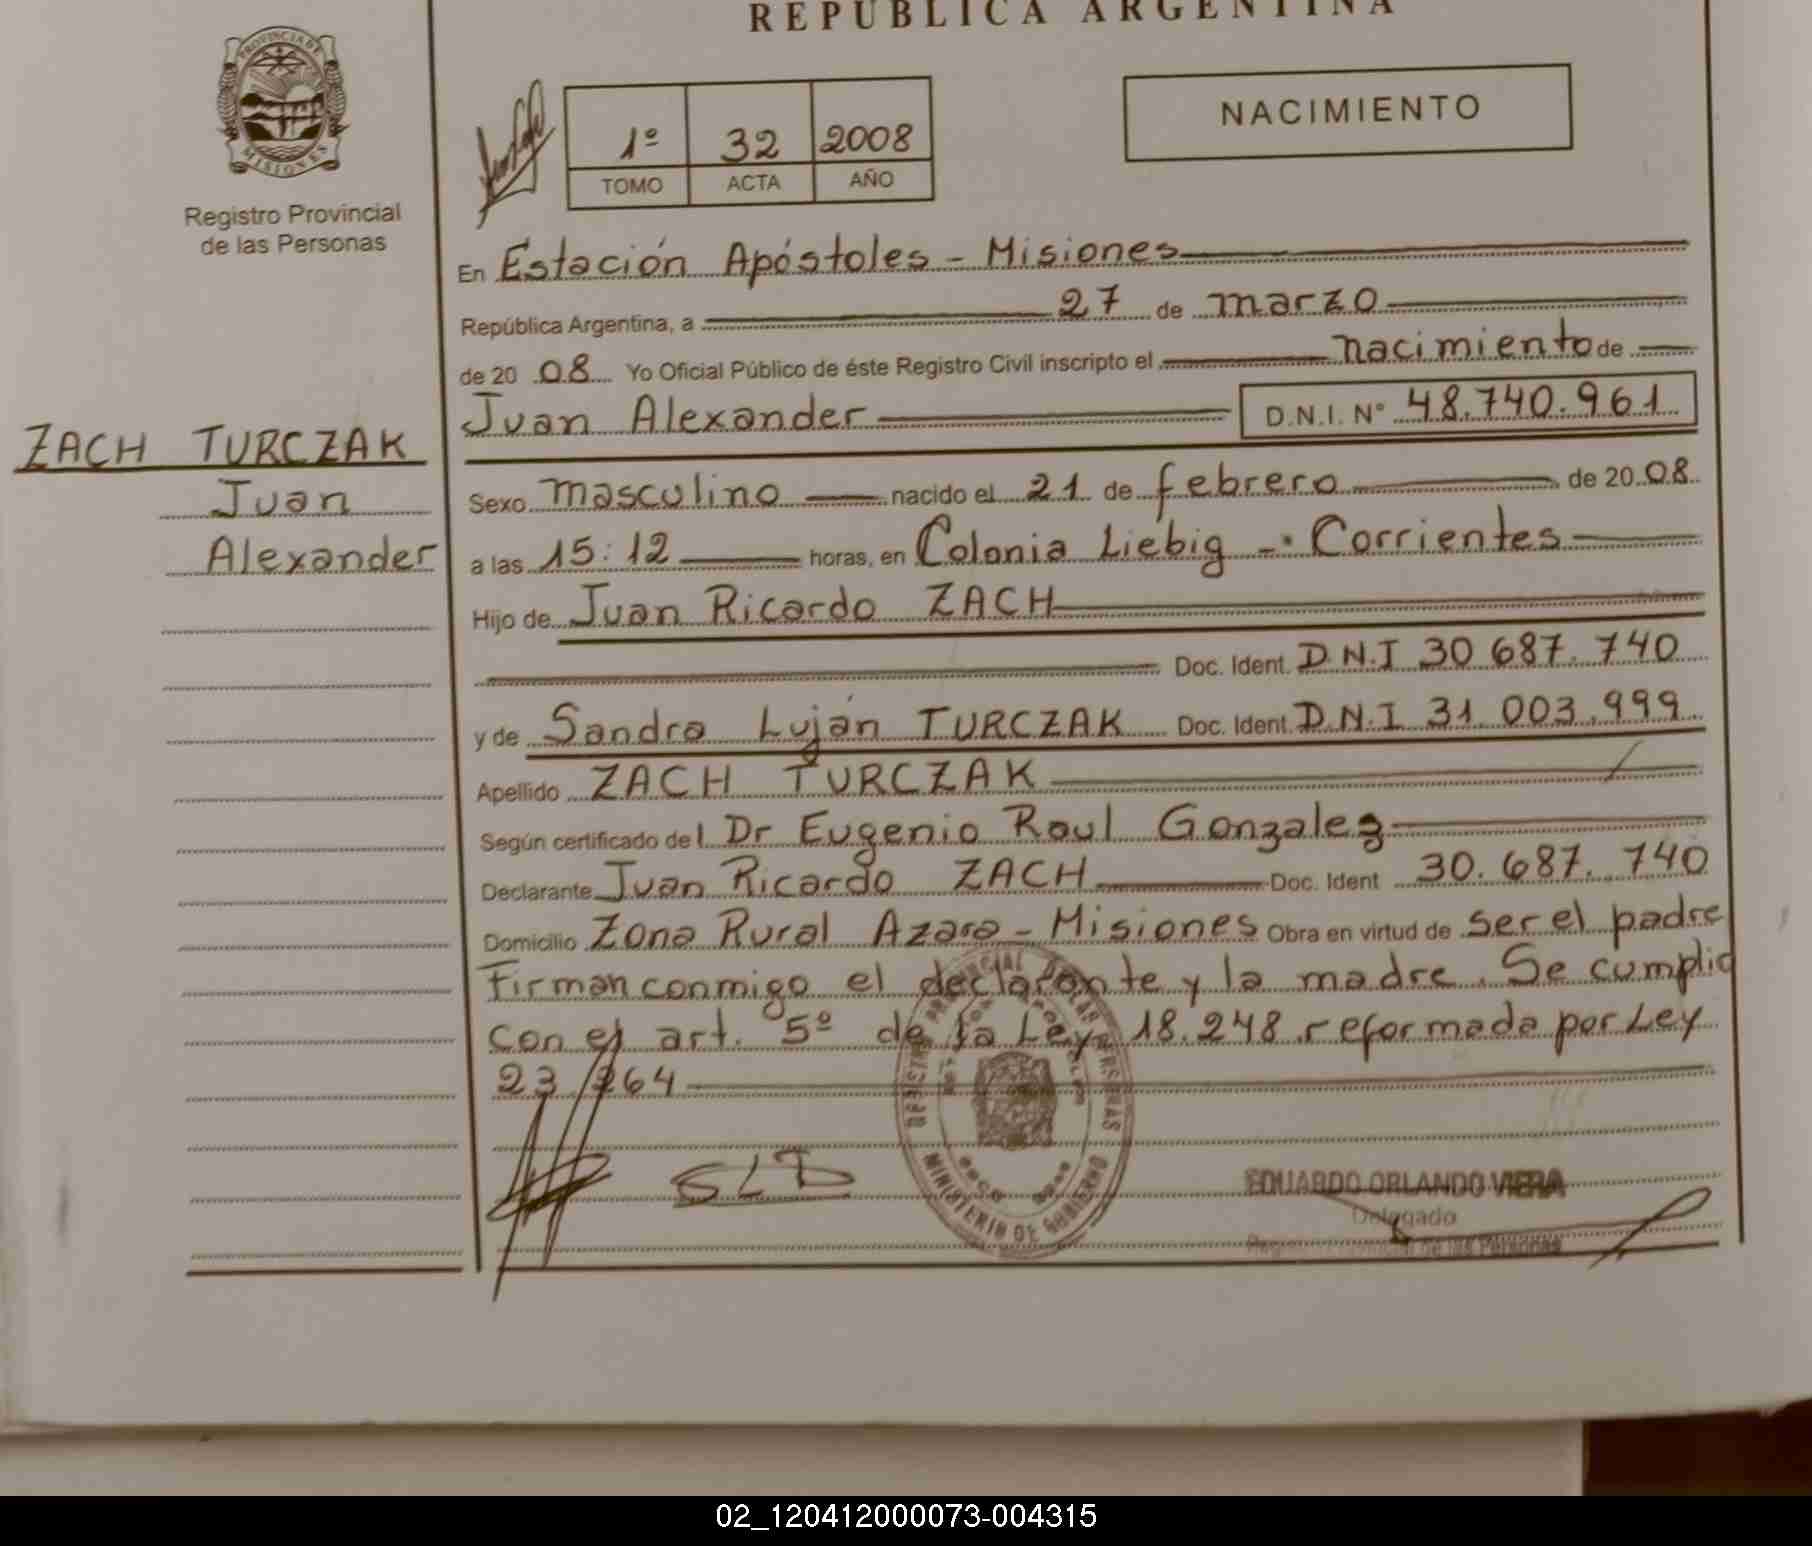 REPUBLICA ARGENTINA
PROVINCIA DE
MISIONES
Registro Provincial
de las Personas
1º 32 2008
TOMO ACTA AÑO
NACIMIENTO
En Estación Apóstoles - Misiones
República Argentina, a 27 de marzo
de 2008 Yo Oficial Público de éste Registro Civil inscripto el nacimiento de
Juan Alexander D.N.I. Nº 48.740.961
ZACH TURCZAK
Juan
Alexander
Sexo masculino nacido el 21 de febrero de 2008
a las 15:12 horas, en Colonia Liebig - Corrientes
Hijo de Juan Ricardo ZACH
Doc. Ident. D.N.I 30 687.740
y de Sandra Luján TURCZAK Doc. Ident. D.N.I 31.003.999
Apellido ZACH TURCZAK
Según certificado del Dr Eugenio Raul Gonzalez
Declarante Juan Ricardo ZACH Doc. Ident 30.687.740
Domicilio Zona Rural Azara - Misiones Obra en virtud de ser el padre
Firman conmigo el declarante y la madre. Se cumplio
con el art. 5º de la Ley 18.248 reformada por Ley
23.264
MINISTERIO DE GOBIERNO
EDUARDO ORLANDO VIERA
Delegado
de las Personas
02_120412000073-004315